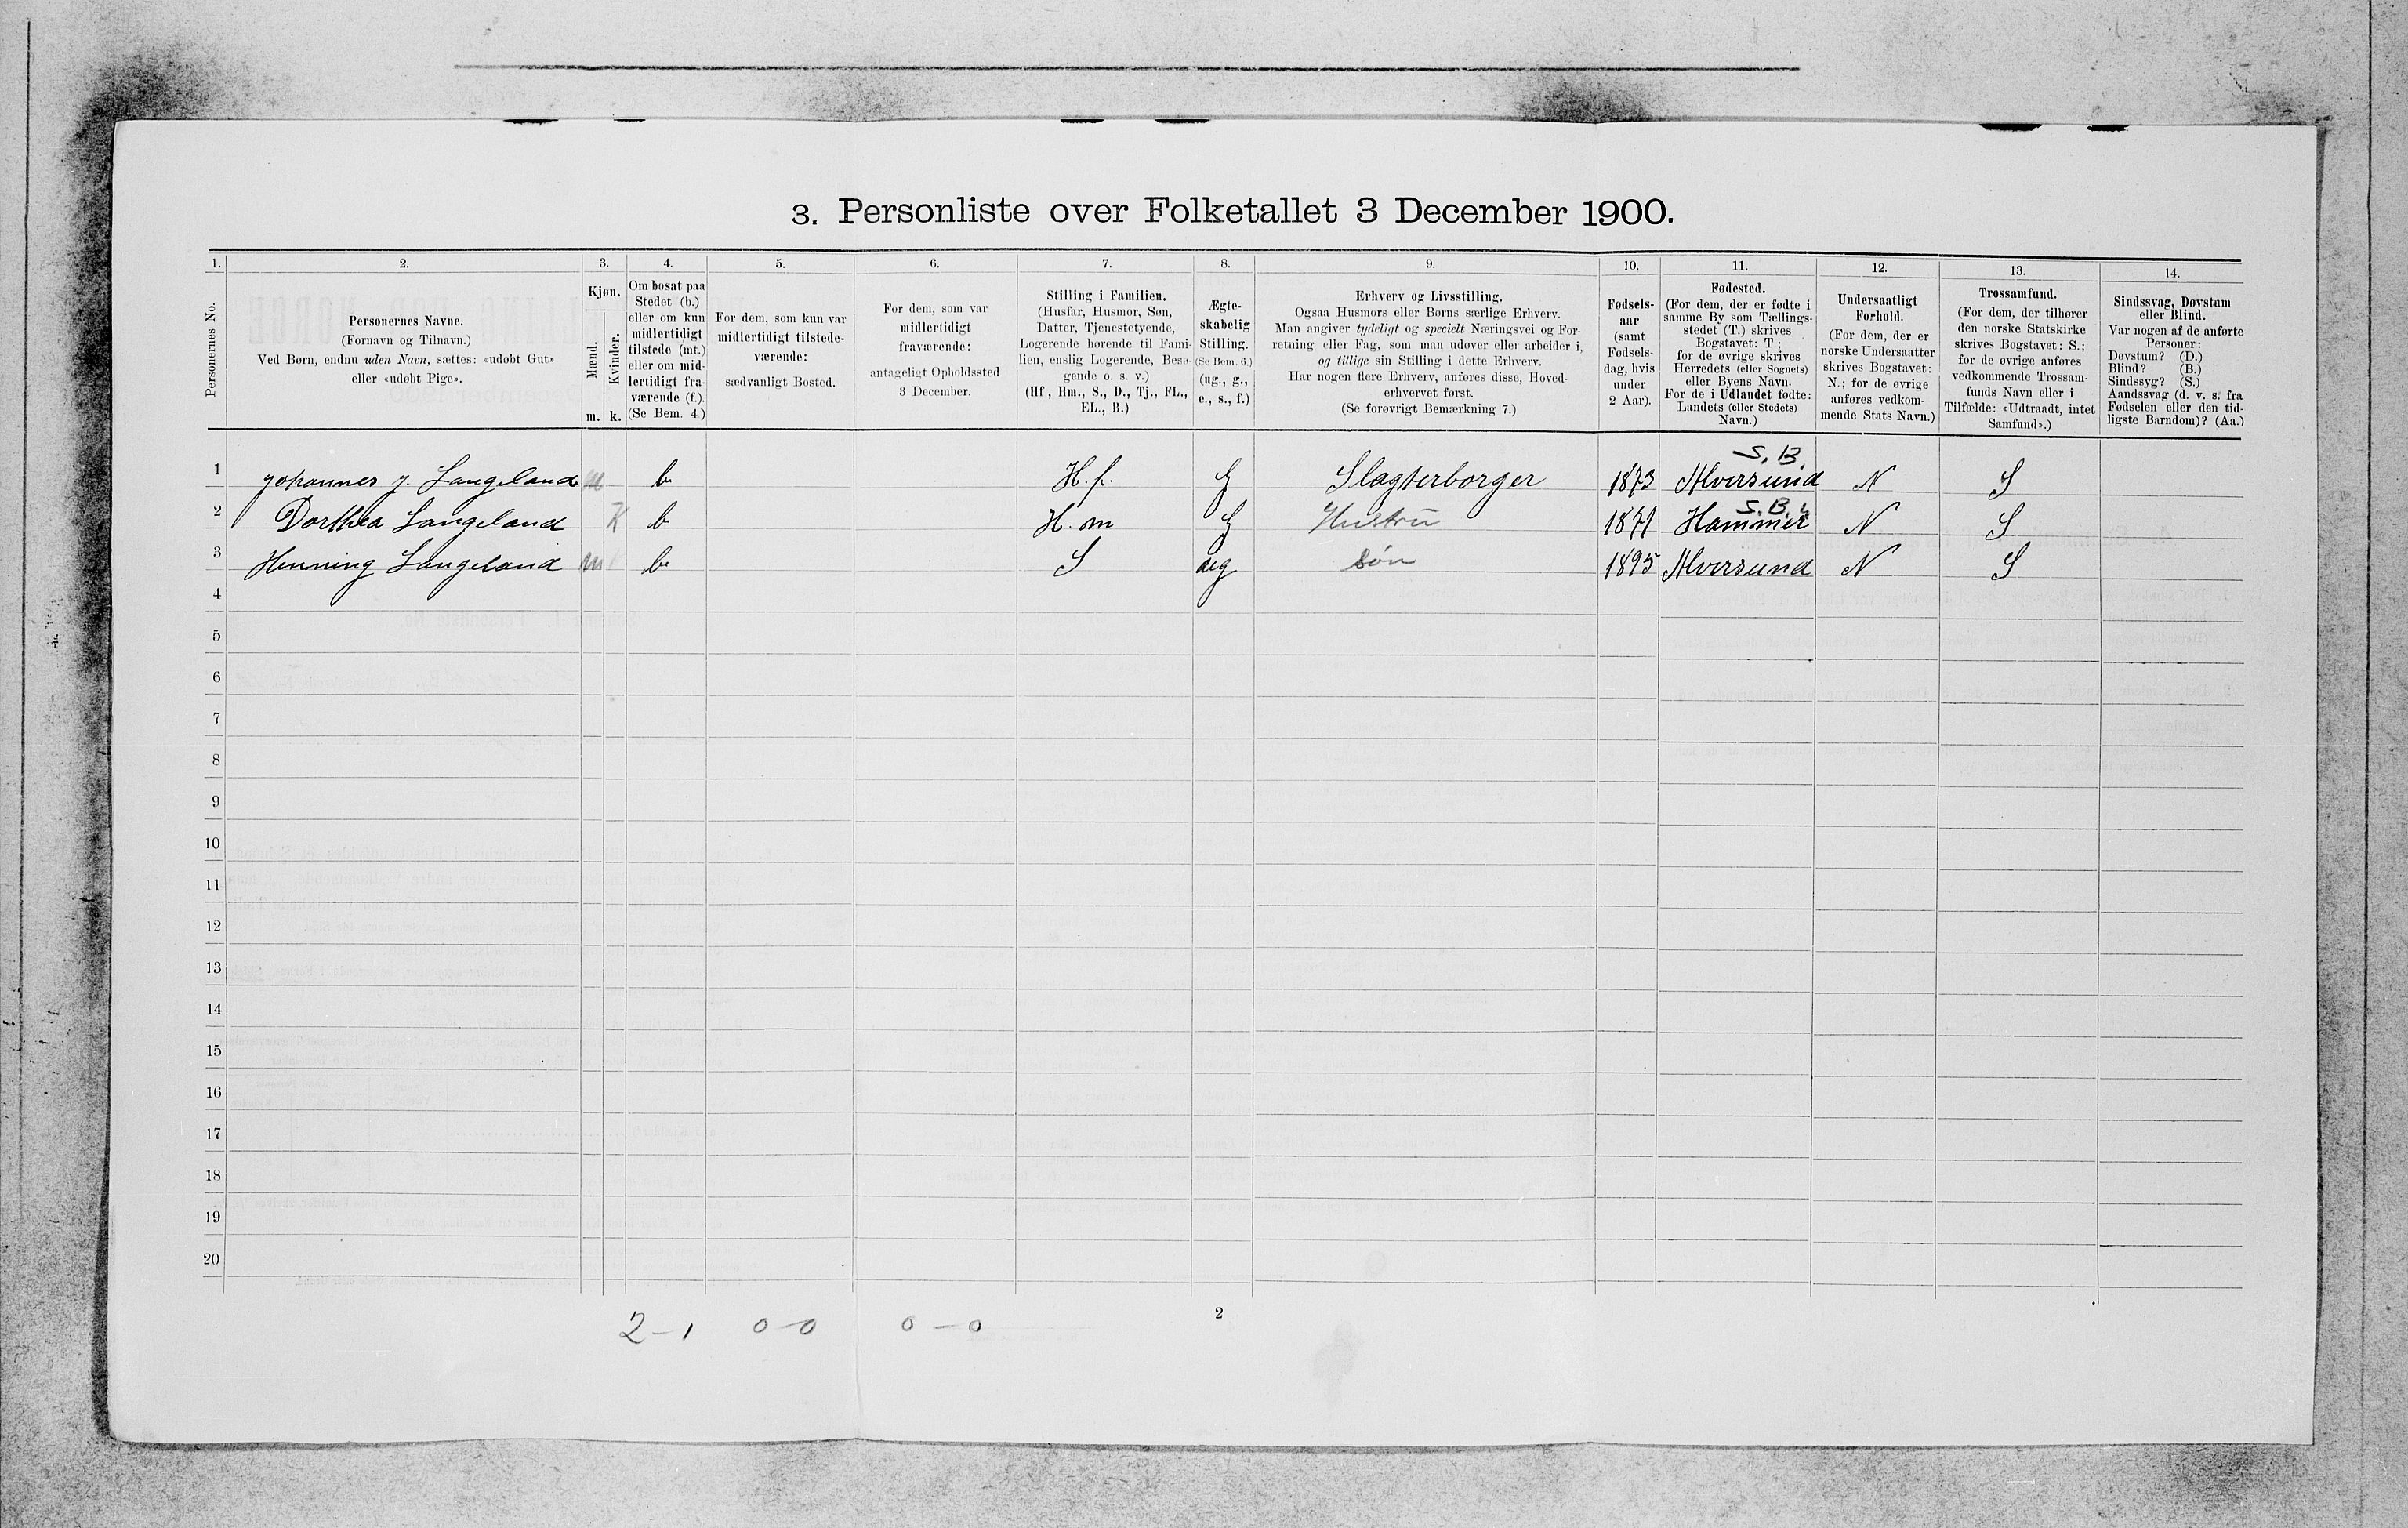 3. Personliste over Folketallet 3 December 1900.
1. 2. 3. 4. 5. 6. 7. 8. 9. 10. 11. 12. 13. 14.
Personernes No.
Personernes Navne.
(Fornavn og Tilnavn.)
Ved Børn, endnu uden Navn, sættes: «udøbt Gut»
eller «udøbt Pige».
Kjøn.
Mænd.
Kvinder.
m. k.
Om bosat paa
Stedet (b.)
eller om kun
midlertidigt
tilstede (mt.)
eller om mid-
lertidigt fra-
værende (f.).
(Se Bem. 4.)
For dem, som kun var
midlertidigt tilstede-
værende:
sædvanligt Bosted.
For dem, som var
midlertidigt
fraværende:
antageligt Opholdssted
3 December.
Stilling i Familien.
(Husfar, Husmor, Søn,
Datter, Tjenestetyende,
Logerende hørende til Fami-
lien, enslig Logerende, Besø-
gende o. s. v.)
(Hf., Hm., S., D., Tj., FL.,
EL., B.)
Ægte-
skabelig
Stilling.
(Se Bem. 6.)
(ug., g.,
e., s., f.)
Erhverv og Livsstilling.
Ogsaa Husmors eller Børns særlige Erhverv.
Man angiver tydeligt og specielt Næringsvei og For-
retning eller Fag, som man udøver eller arbeider i,
og tillige sin Stilling i dette Erhverv.
Har nogen flere Erhverv, anføres disse, Hoved-
erhvervet først.
(Se forøvrigt Bemærkning 7.)
Fødsels-
aar
(samt
Fødsels-
dag, hvis
under
2 Aar).
Fødested.
(For dem, der er fødte i
samme By som Tællings-
stedet (T.) skrives
Bogstavet: T.;
for de øvrige skrives
Herredets (eller Sognets)
eller Byens Navn.
For de i Udlandet fødte:
Landets (eller Stedets)
Navn.)
Undersaatligt
Forhold.
(For dem, der er
norske Undersaatter
skrives Bogstavet:
N.; for de øvrige
anføres vedkom-
mende Stats Navn.)
Trossamfund.
(For dem, der tilhører
den norske Statskirke
skrives Bogstavet: S.;
for de øvrige anføres
vedkommende Trossam-
funds Navn eller i
Tilfælde: «Udtraadt, intet
Samfund».)
Sindssvag, Døvstum
eller Blind.
Var nogen af de anførte
Personer:
Døvstum? (D.)
Blind? (B.)
Sindssyg? (S.)
Aandssvag (d. v. s. fra
Fødselen eller den tid-
ligste Barndom)? (Aa.)
S. B.
1 Johannes J. Langeland m b H. f. G Slagterborger 1873 Alversund N S
S. B.
2 Dorthea Langeland K b H. m G Hustru 1871 Hammer N S
3 Henning Langeland m b S ug søn 1895 Alversund N S
4
5
6
7
8
9
10
11
12
13
14
15
16
17
18
19
20
2
2-1 0-0 0-0